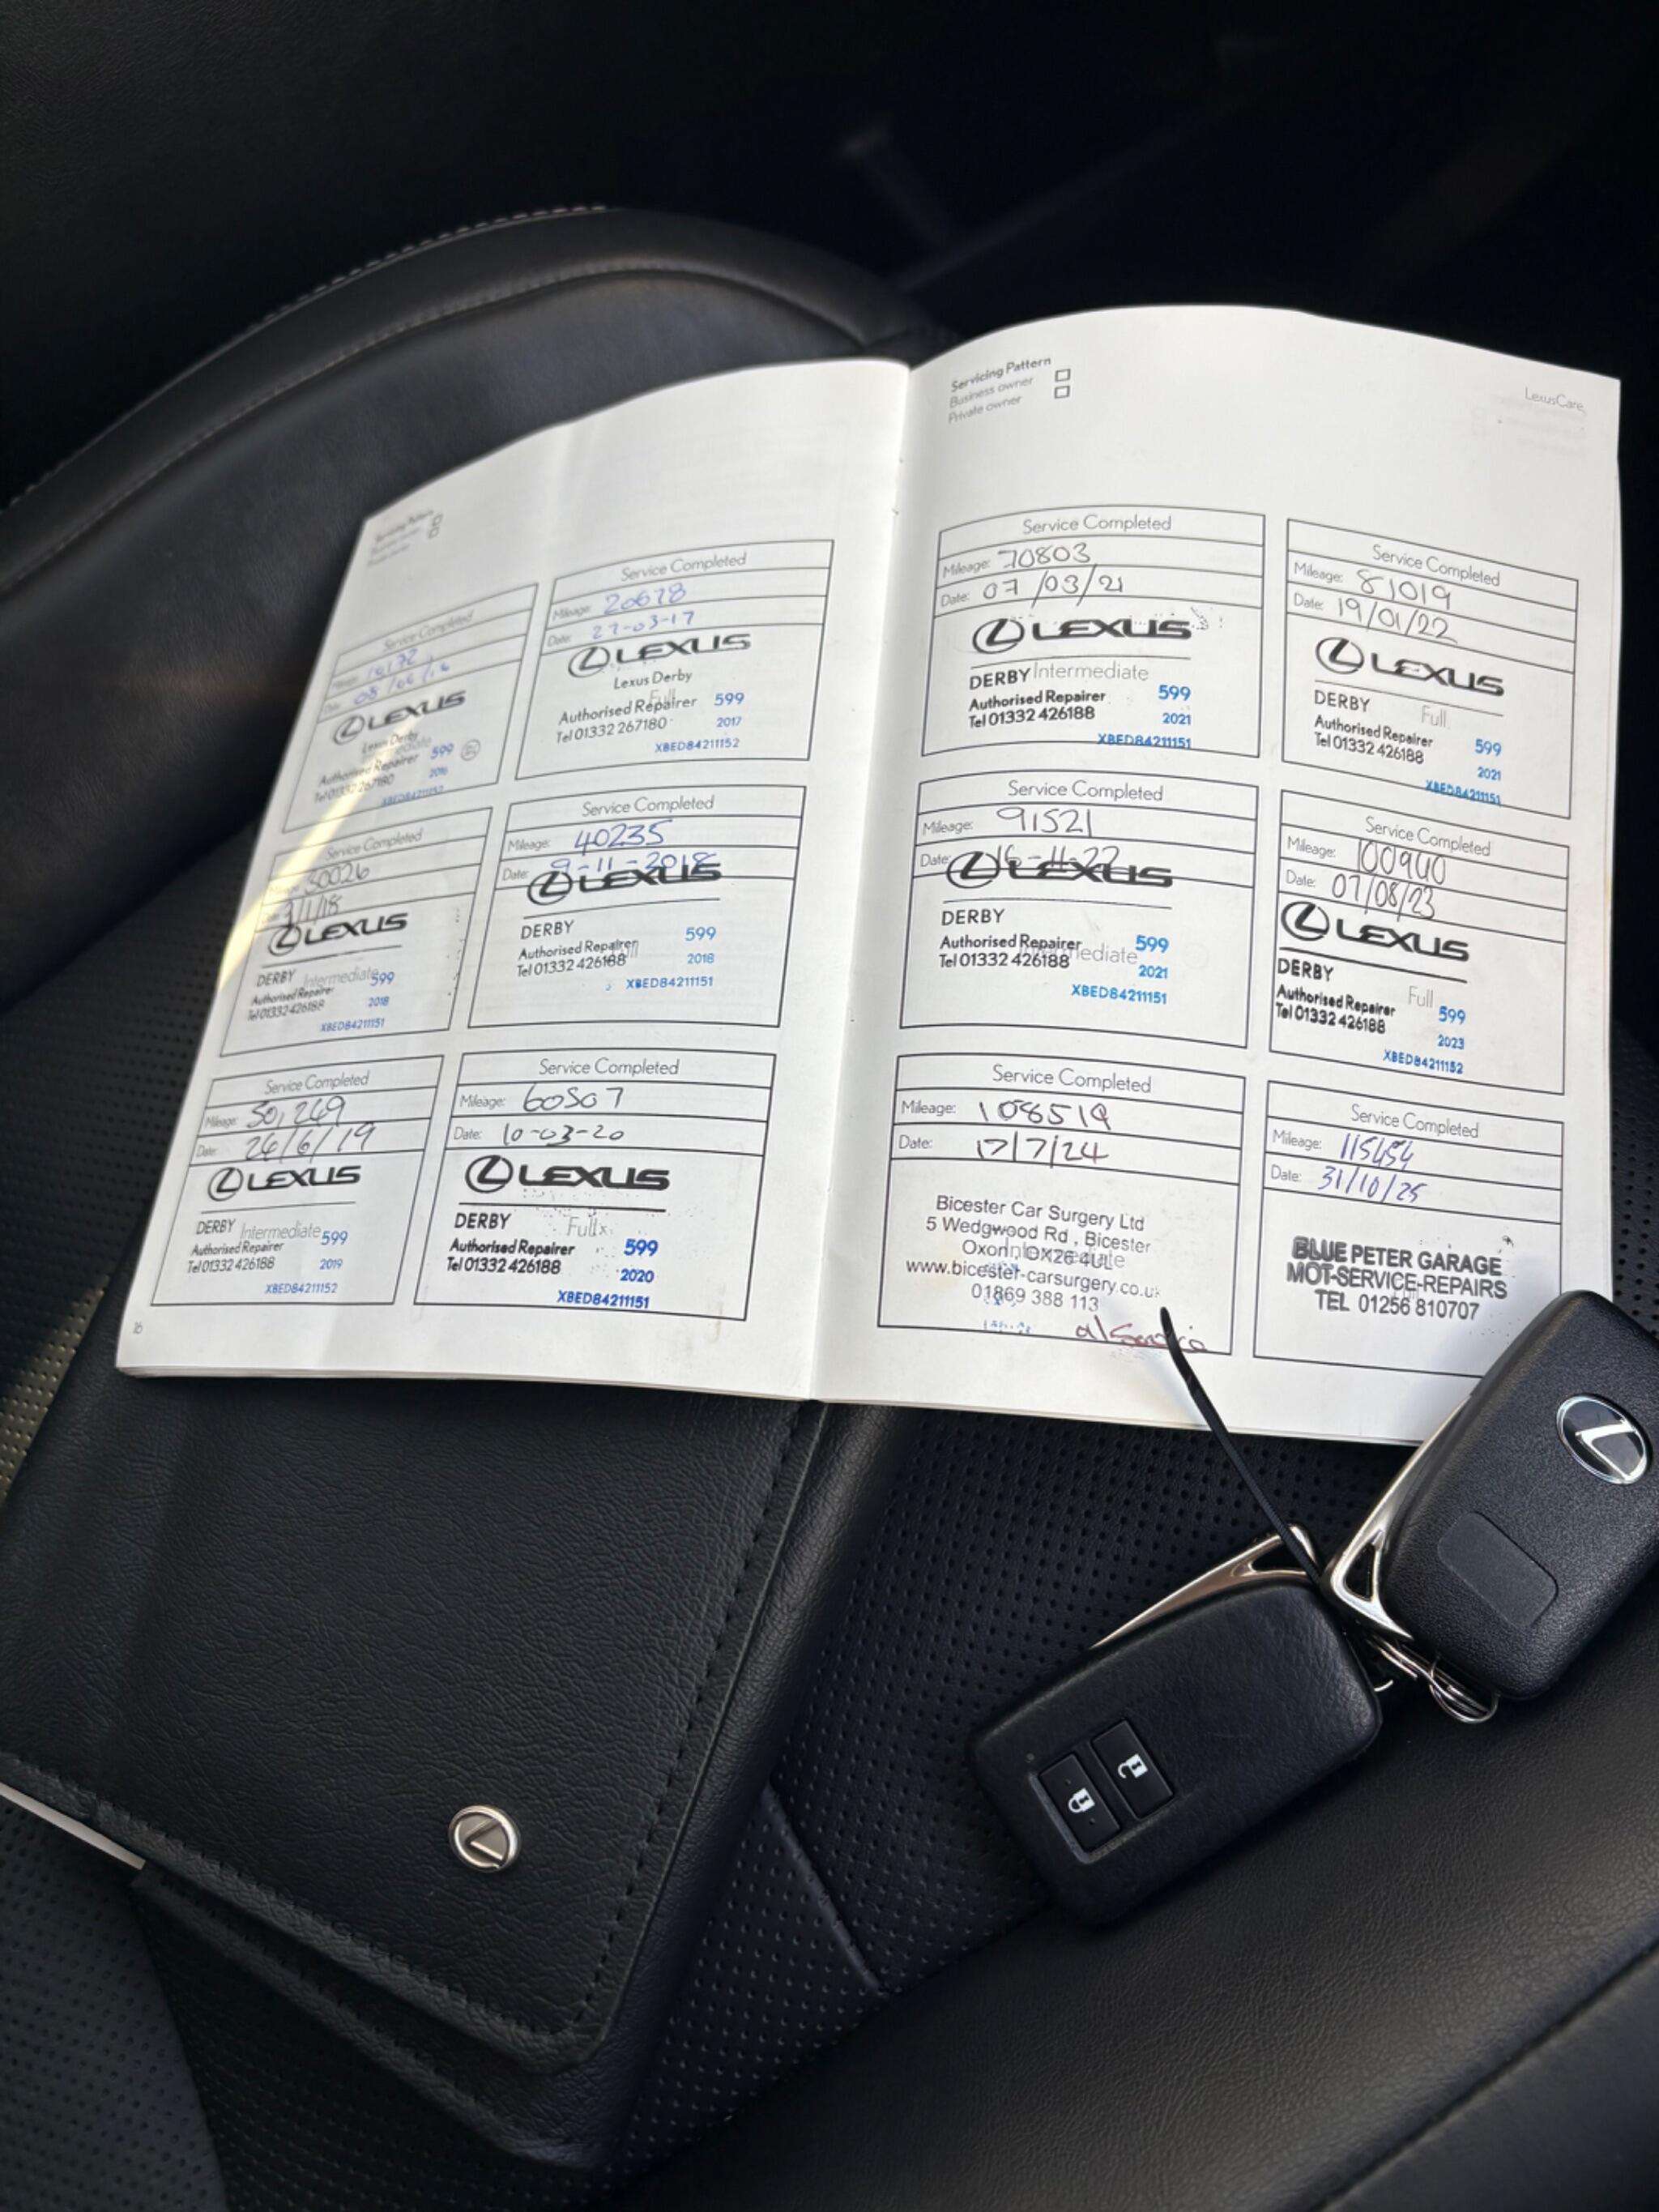 Servicing Pattern
Business owner
Private owner
LexusCare
Service Completed
Mileage:
LEXUS
Lexus Derby
599
Authorised Repairer
2016
Tel 01332 267180
XBED84211152
Service Completed
Mileage: 20678
Date: 27-03-17
LEXUS
Lexus Derby
Full
Authorised Repairer 599
Tel 01332 267180 2017
XBED84211152
Service Completed
Mileage: 30026
3/1/18
LEXUS
DERBY Intermediate 599
Authorised Repairer
Tel 01332 426188 2018
XBED84211151
Service Completed
Mileage: 40235
Date: 9-11-2018
LEXUS
DERBY
Authorised Repairer 599
Tel 01332 426188 2018
XBED84211151
Service Completed
Mileage: 50,249
Date: 26/6/19
LEXUS
DERBY Intermediate 599
Authorised Repairer
Tel 01332 426188 2019
XBED84211152
Service Completed
Mileage: 60507
Date: 10-03-20
LEXUS
DERBY Full
Authorised Repairer 599
Tel 01332 426188 2020
XBED84211151
16
Service Completed
Mileage: 70803
Date: 07/03/21
LEXUS
DERBY Intermediate
Authorised Repairer 599
Tel 01332 426188 2021
XBED84211151
Service Completed
Mileage: 81019
Date: 19/01/22
LEXUS
DERBY Full
Authorised Repairer 599
Tel 01332 426188 2021
XBED84211151
Service Completed
Mileage: 91521
Date: 16-11-22
LEXUS
DERBY
Authorised Repairer 599
Tel 01332 426188 2021
XBED84211151
Service Completed
Mileage: 100940
Date: 07/08/23
LEXUS
DERBY
Authorised Repairer Full 599
Tel 01332 426188 2023
XBED84211152
Service Completed
Mileage: 108519
Date: 17/7/24
Bicester Car Surgery Ltd
5 Wedgwood Rd , Bicester
Oxon OX26 4UL
www.bicester-carsurgery.co.uk
01869 388 113
Service Completed
Mileage: 115454
Date: 31/10/25
BLUE PETER GARAGE
MOT-SERVICE-REPAIRS
TEL 01256 810707